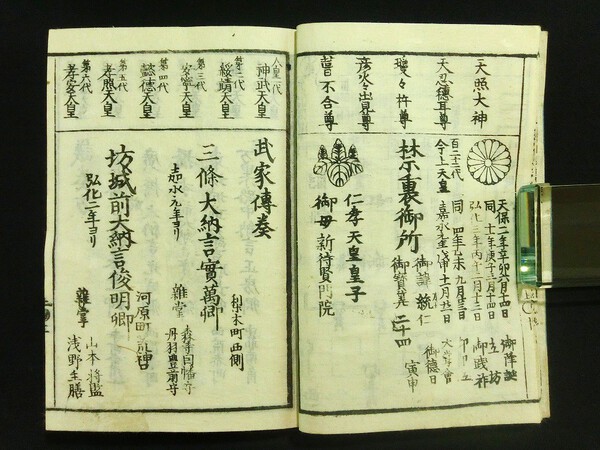 天照大神
天忍穂耳尊
瓊々杵尊
彦火々出見尊
不合尊
天保二年辛卯六月十四日
御降誕
同十一年庚子三月十四日
立坊
弘化三年丙午二月十三日
御践祚
同四年丁未九月廿三日
嘉永元年戊申十一月廿一日
大嘗會
百二十二代
今上天皇
禁裏御所
御諱統仁
御徳日
御寶算二十四
寅申
仁孝天皇皇子
御母新待賢門院
人皇一代
神武天皇
第二代
綏靖天皇
第三代
安寧天皇
第四代
懿徳天皇
第五代
孝昭天皇
第六代
孝安天皇
武家傳奏
梨木町西側
三條大納言實萬卿
嘉永元年ヨリ
雜掌
森寺因幡守
丹羽豊前守
坊城前大納言俊明卿
弘化二年ヨリ
河原町荒神口
雜掌
山本将監
浅野主膳